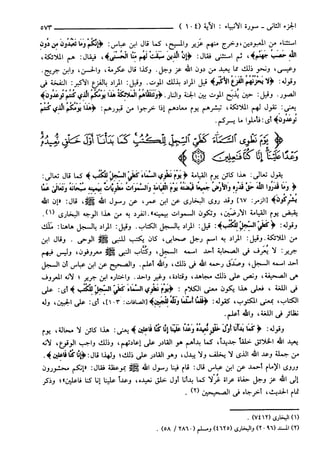 الجزء الثانى - سورة الأنبياء : الآية (١٠٤) ٥٧٣
استثناء من المعبودين وخرج منهم عزير والمسيح، كما قال ابن عباس: ﴿إِنَّكُمْ وَمَا تَعْبُدُونَ مِن دُونِ
اللَّهِ حَصَبُ جَهَنَّمَ﴾، ثم استثنى فقال: ﴿إِنَّ الَّذِينَ سَبَقَتْ لَهُم مِّنَّا الْحُسْنَى﴾، فيقال: هم الملائكة،
وعيسى، ونحو ذلك مما يعبد من دون الله عز وجل. وكذا قال عكرمة، والحسن، وابن جريج.
وقوله: ﴿لا يَحْزُنُهُمُ الْفَزَعُ الأَكْبَرُ﴾ قيل المراد بذلك الموت. وقيل: المراد بالفزع الأكبر: النفخة فى
الصور. وقيل: حين يُذبح الموت بين الجنة والنار. ﴿وَتَتَلَقَّاهُمُ الْمَلائِكَةُ هَذَا يَوْمُكُمُ الَّذِي كُنتُمْ تُوعَدُونَ﴾
يعنى: تقول لهم الملائكة، تبشرهم يوم معادهم إذا خرجوا من قبورهم: ﴿هَذَا يَوْمُكُمُ الَّذِي كُنتُمْ
تُوعَدُونَ﴾ أى: فأملوا ما يسركم.
﴿يَوْمَ نَطْوِي السَّمَاءَ كَطَيِّ السِّجِلِّ لِلْكُتُبِ كَمَا بَدَأْنَا أَوَّلَ خَلْقٍ نُّعِيدُهُ
وَعْدًا عَلَيْنَا إِنَّا كُنَّا فَاعِلِينَ﴾
يقول تعالى: هذا كائن يوم القيامة ﴿يَوْمَ نَطْوِي السَّمَاءَ كَطَيِّ السِّجِلِّ لِلْكُتُبِ﴾ كما قال تعالى:
﴿وَمَا قَدَرُوا اللَّهَ حَقَّ قَدْرِهِ وَالأَرْضُ جَمِيعًا قَبْضَتُهُ يَوْمَ الْقِيَامَةِ وَالسَّمَوَاتُ مَطْوِيَّاتٌ بِيَمِينِهِ سُبْحَانَهُ وَتَعَالَى عَمَّا
يُشْرِكُونَ﴾ [الزمر: ٦٧] وقد روى البخارى عن ابن عمر، عن رسول الله ﷺ قال: «إن الله
يقبض يوم القيامة الأرضين، وتكون السموات بيمينه». انفرد به من هذا الوجه البخارى (١).
وقوله: ﴿كَطَيِّ السِّجِلِّ لِلْكُتُبِ﴾، قيل: المراد بالسجل الكتاب. وقيل: المراد بالسجل هاهنا: مَلَك
من الملائكة. وقيل: المراد به اسم رجل صحابى، كان يكتب للنبى ﷺ الوحى . وقال ابن
جرير: لا يُعرف فى الصحابة أحد اسمه السجل، وكُتاب النبى ﷺ معروفون، وليس فيهم
أحد اسمه السجل، وصدَق رحمه الله فى ذلك، والله أعلم. والصحيح عن ابن عباس أن السجل
هى الصحيفة، ونص على ذلك مجاهد، وقتادة، وغير واحد. واختاره ابن جرير ؛ لأنه المعروف
فى اللغة ، فعلى هذا يكون معنى الكلام : ﴿يَوْمَ نَطْوِي السَّمَاءَ كَطَيِّ السِّجِلِّ لِلْكُتُبِ﴾ أى: على
الكتاب، بمعنى المكتوب، كقوله: ﴿فَلَمَّا أَسْلَمَا وَتَلَّهُ لِلْجَبِينِ﴾ [الصافات: ١٠٣]، أى: على الجبين، وله
نظائر فى اللغة، والله أعلم.
وقوله: ﴿كَمَا بَدَأْنَا أَوَّلَ خَلْقٍ نُّعِيدُهُ وَعْدًا عَلَيْنَا إِنَّا كُنَّا فَاعِلِينَ﴾ يعنى: هذا كائن لا محالة، يوم
يعيد الله الخلائق خلقًا جديدًا، كما بدأهم هو القادر على إعادتهم، وذلك واجب الوقوع، لأنه
من جملة وعد الله الذى لا يخلف ولا يبدل، وهو القادر على ذلك؛ ولهذا قال: ﴿إِنَّا كُنَّا فَاعِلِينَ﴾.
وروى الإمام أحمد عن ابن عباس قال: قام فينا رسول الله ﷺ بموعظة فقال: «إنكم محشورون
إلى الله عز وجل حفاة عراة غُرْلا كما بدأنا أول خلق نعيده، وعدًا علينا إنا كنا فاعلين»؛ وذكر
تمام الحديث، أخرجاه فى الصحيحين (٢) .
(١) البخارى (٧٤١٢) .
(٢) المسند (٢٠٩٦) والبخارى (٤٦٢٥) ومسلم (٢٨٦٠ / ٥٨) .